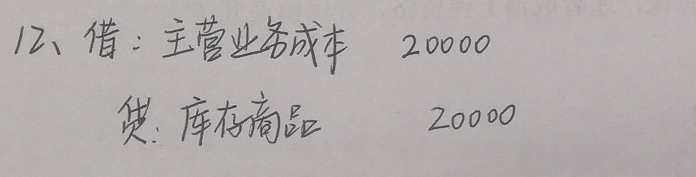 12、借：主营业务成本 20000
贷：库存商品 20000